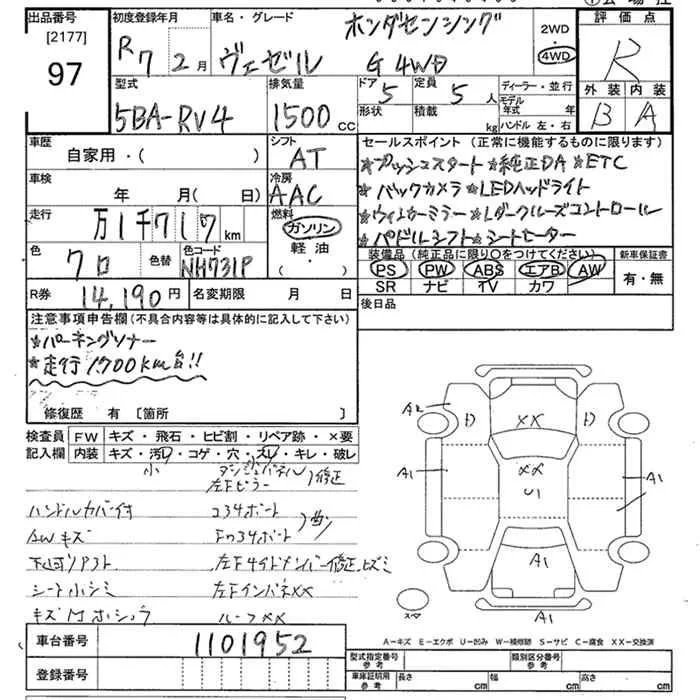 出品番号
[2177]
97
初度登録年月
R7 2月
車名・グレード
ホンダセンシング
ヴェゼル G 4WD
2WD
・
4WD
評価点
R
外装 内装
B A
型式
5BA-RV4
排気量
1500 cc
ドア
5
形状
定員
5 人
積載
kg
ディーラー・並行
モデル年式 年
ハンドル 左・右
車歴
自家用・( )
シフト
AT
車検
年 月( 日)
冷房
AAC
走行
万1千717 km
燃料
ガソリン
軽油
・
色
クロ
色替
色コード
NH731P
R券
14,190円
名変期限 月 日
セールスポイント (正常に機能するものに限ります)
★プッシュスタート★純正DA★ETC
★バックカメラ★LEDヘッドライト
★ウィンカーミラー★Lダークルーズコントロール
★パドルシフト★シートヒーター
装備品(純正品に限り○をつけてください)
PS PW ABS エアB AW
SR ナビ TV カワ
新車保証書
有・無
後日品
注意事項申告欄(不具合内容等は具体的に記入して下さい)
★パーキングソナー
★走行1700km台!!
修復歴 有〔箇所 〕
検査員記入欄
FW キズ・飛石・ヒビ割・リペア跡・×要
内装 キズ・汚レ・コゲ・穴・スレ・キレ・破レ
小
左Fピラー 修正
ハンドルカバー付 コア4ボート 曲
AWキズ
下廻リリフト 左F サイドメンバー修正ヒズミ
シート小シミ 左FインパネXX
ルーフXX
A2
D
XX
D
A1
XX
U1
A1
A1
A1
スペア
A-キズ E-エクボ U-凹み W-補修跡 S-サビ C-腐食 XX-交換済
車台番号
1101952
登録番号
型式指定番号
参考
類別区分番号
参考
車庫証明用
参考
長さ cm
幅 cm
高さ cm